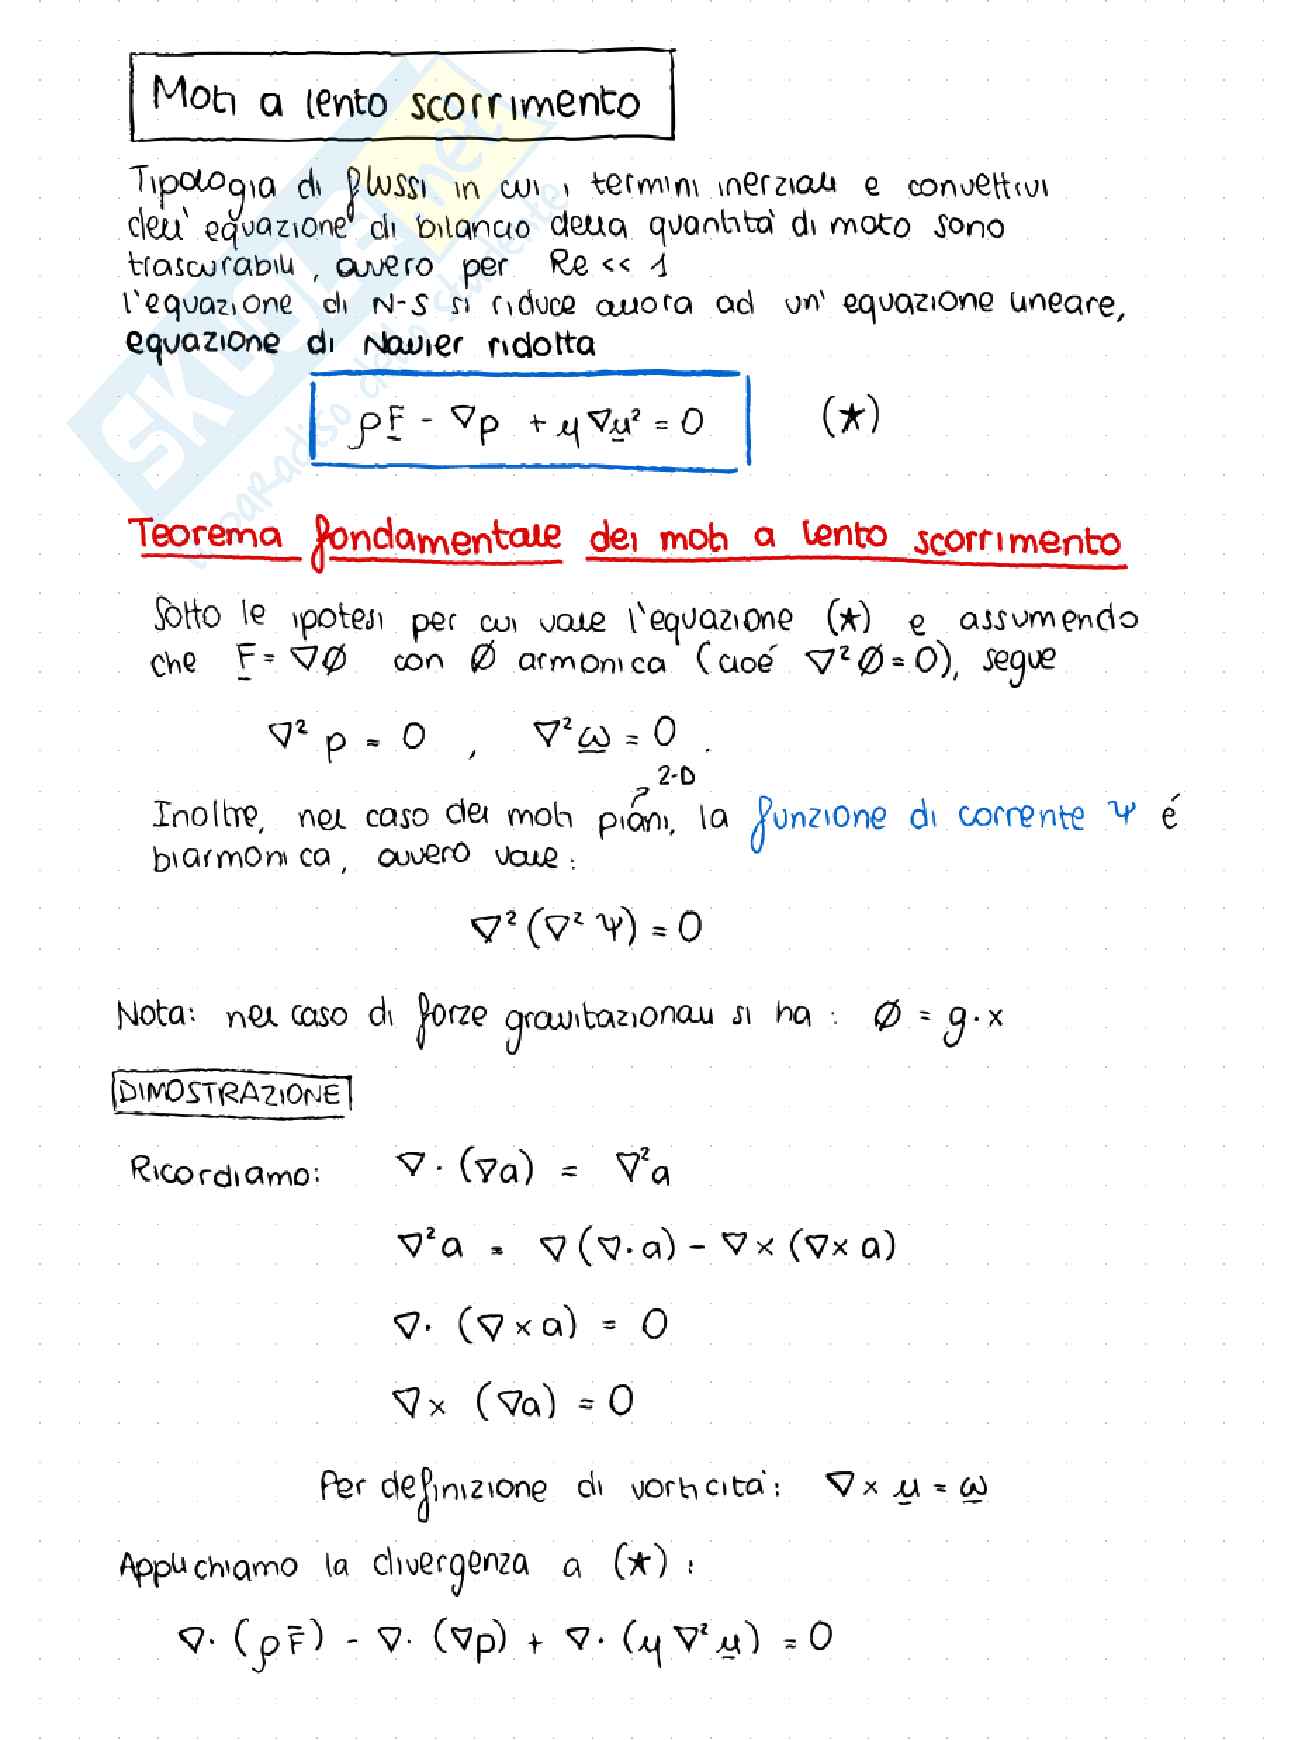 Moti a lento scorrimento
Tipologia di flussi in cui i termini inerziali e convettivi
dell'equazione di bilancio della quantità di moto sono
trascurabili, ovvero per Re << 1
l'equazione di N-S si riduce allora ad un'equazione lineare,
equazione di Navier ridotta
ρF - ∇p + μ∇u² = 0 (★)
Teorema fondamentale dei moti a lento scorrimento
Sotto le ipotesi per cui vale l'equazione (★) e assumendo
che F = ∇Ø con Ø armonica (cioé ∇²Ø = 0), segue
∇² p = 0 , ∇²ω = 0 .
2-D
Inoltre, nel caso dei moti piani, la funzione di corrente Ψ é
biarmonica, ovvero vale:
∇²(∇² Ψ) = 0
Nota: nel caso di forze gravitazionali si ha : Ø = g·x
DIMOSTRAZIONE
Ricordiamo: ∇·(∇a) = ∇²a
∇²a = ∇(∇·a) - ∇×(∇×a)
∇·(∇×a) = 0
∇×(∇a) = 0
Per definizione di vorticità: ∇×u = ω
Applichiamo la divergenza a (★) :
∇·(ρF̄) - ∇·(∇p) + ∇·(μ∇²u) = 0
SKUOLA.net
il paradiso dello studente